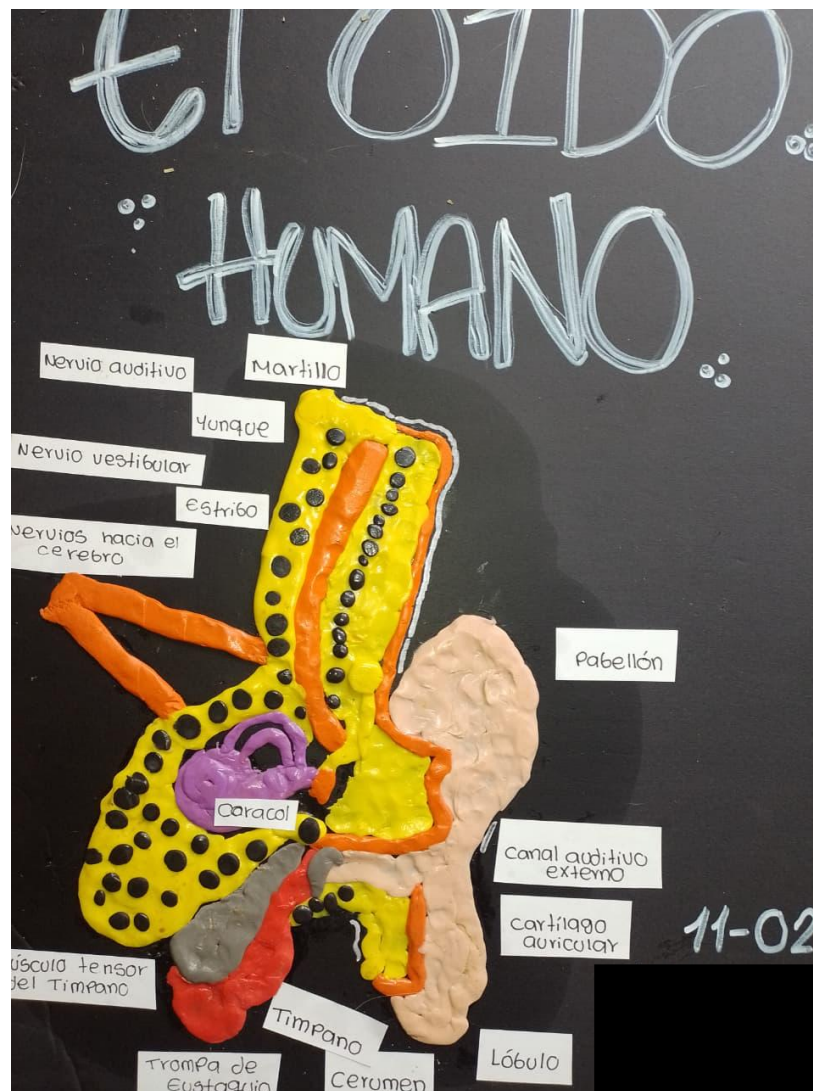 El OIDO
HUMANO
Nervio auditivo
Martillo
Yunque
Nervio vestibular
Estribo
Nervios hacia el
cerebro
Pabellón
Caracol
Canal auditivo
externo
Cartílago
auricular
11-02
úsculo tensor
del Timpano
Timpano
Lóbulo
Trompa de
Eustaquio
Cerumen